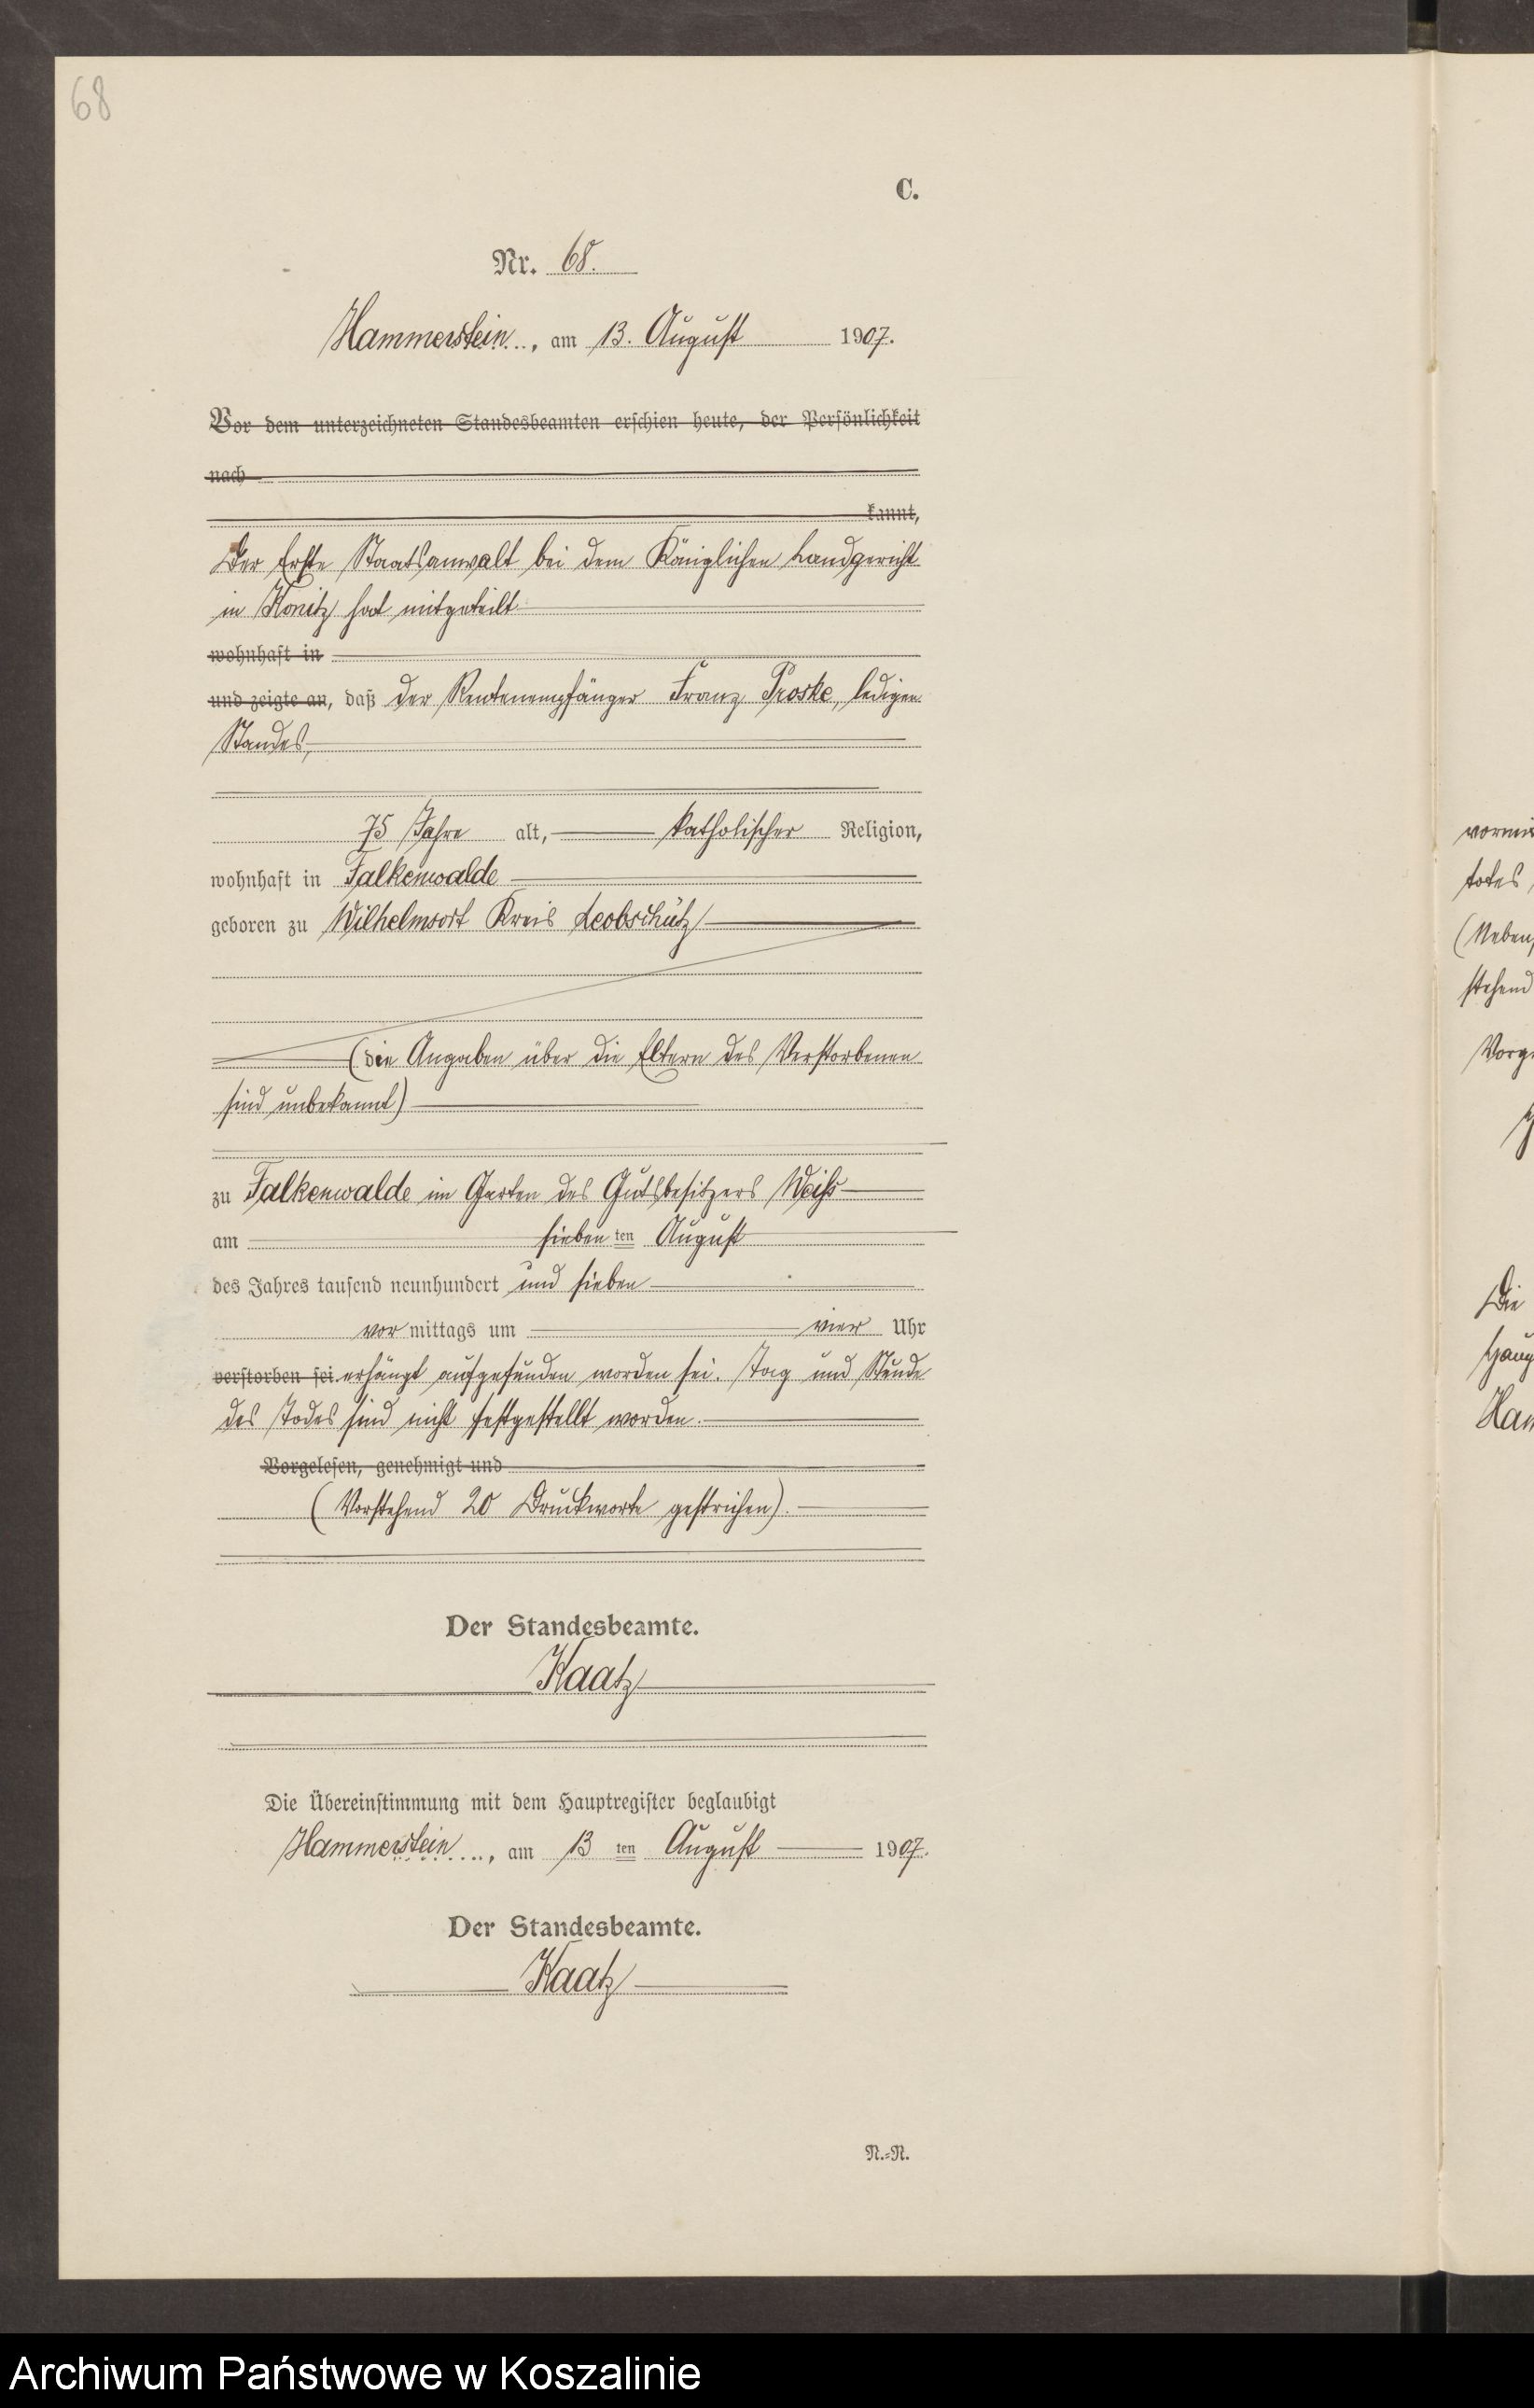 68
C.
Nr. 68.
Hammerstein, am 13. August 1907.
Vor dem unterzeichneten Standesbeamten erschien heute, der Persönlichkeit
nach
kannt,
Der Erste Staatsanwalt bei dem Königlichen Landgericht
in Konitz hat mitgeteilt
wohnhaft in
und zeigte an, daß der Rentenempfänger Franz Proske, ledigen
Standes,
75 Jahre alt, katholischer Religion,
wohnhaft in Falkenwalde
geboren zu Wilhelmsort Kreis Leobschütz
(die Angaben über die Eltern des Verstorbenen
sind unbekannt)
zu Falkenwalde im Garten des Gutsbesitzers Weiß
am sieben ten August
des Jahres tausend neunhundert und sieben
vor mittags um vier Uhr
verstorben sei erhängt aufgefunden worden sei. Tag und Stunde
des Todes sind nicht festgestellt worden.
Vorgelesen, genehmigt und
(Vorstehend 20 Druckworte gestrichen).
Der Standesbeamte.
Kaatz
Die Übereinstimmung mit dem Hauptregister beglaubigt
Hammerstein, am 13 ten August 1907.
Der Standesbeamte.
Kaatz
N.=N.
totes
(Neben
stehend
Die
Ham
Archiwum Państwowe w Koszalinie